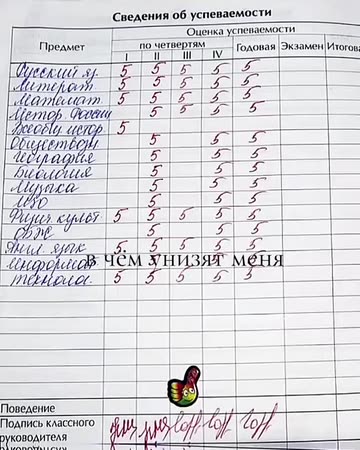 Сведения об успеваемости
Предмет Оценка успеваемости
по четвертям Годовая Экзамен Итогова
I II III IV
Русский яз. 5 5 5 5 5
Литерат. 5 5 5 5 5
Математ. 5 5 5 5 5
Истор. России 5 5 5 5
Всеобщ истор. 5
Обществозн 5 5 5
География 5 5 5
Биология 5 5 5
Музыка 5 5 5
ИЗО 5 5 5
Физич культ 5 5 5 5 5
ОБЖ 5 5 5
Англ. язык 5 5 5 5 5
Информат 5 5 5
в чём унизят меня
Технолог. 5 5 5 5 5
Поведение
Подпись классного
руководителя